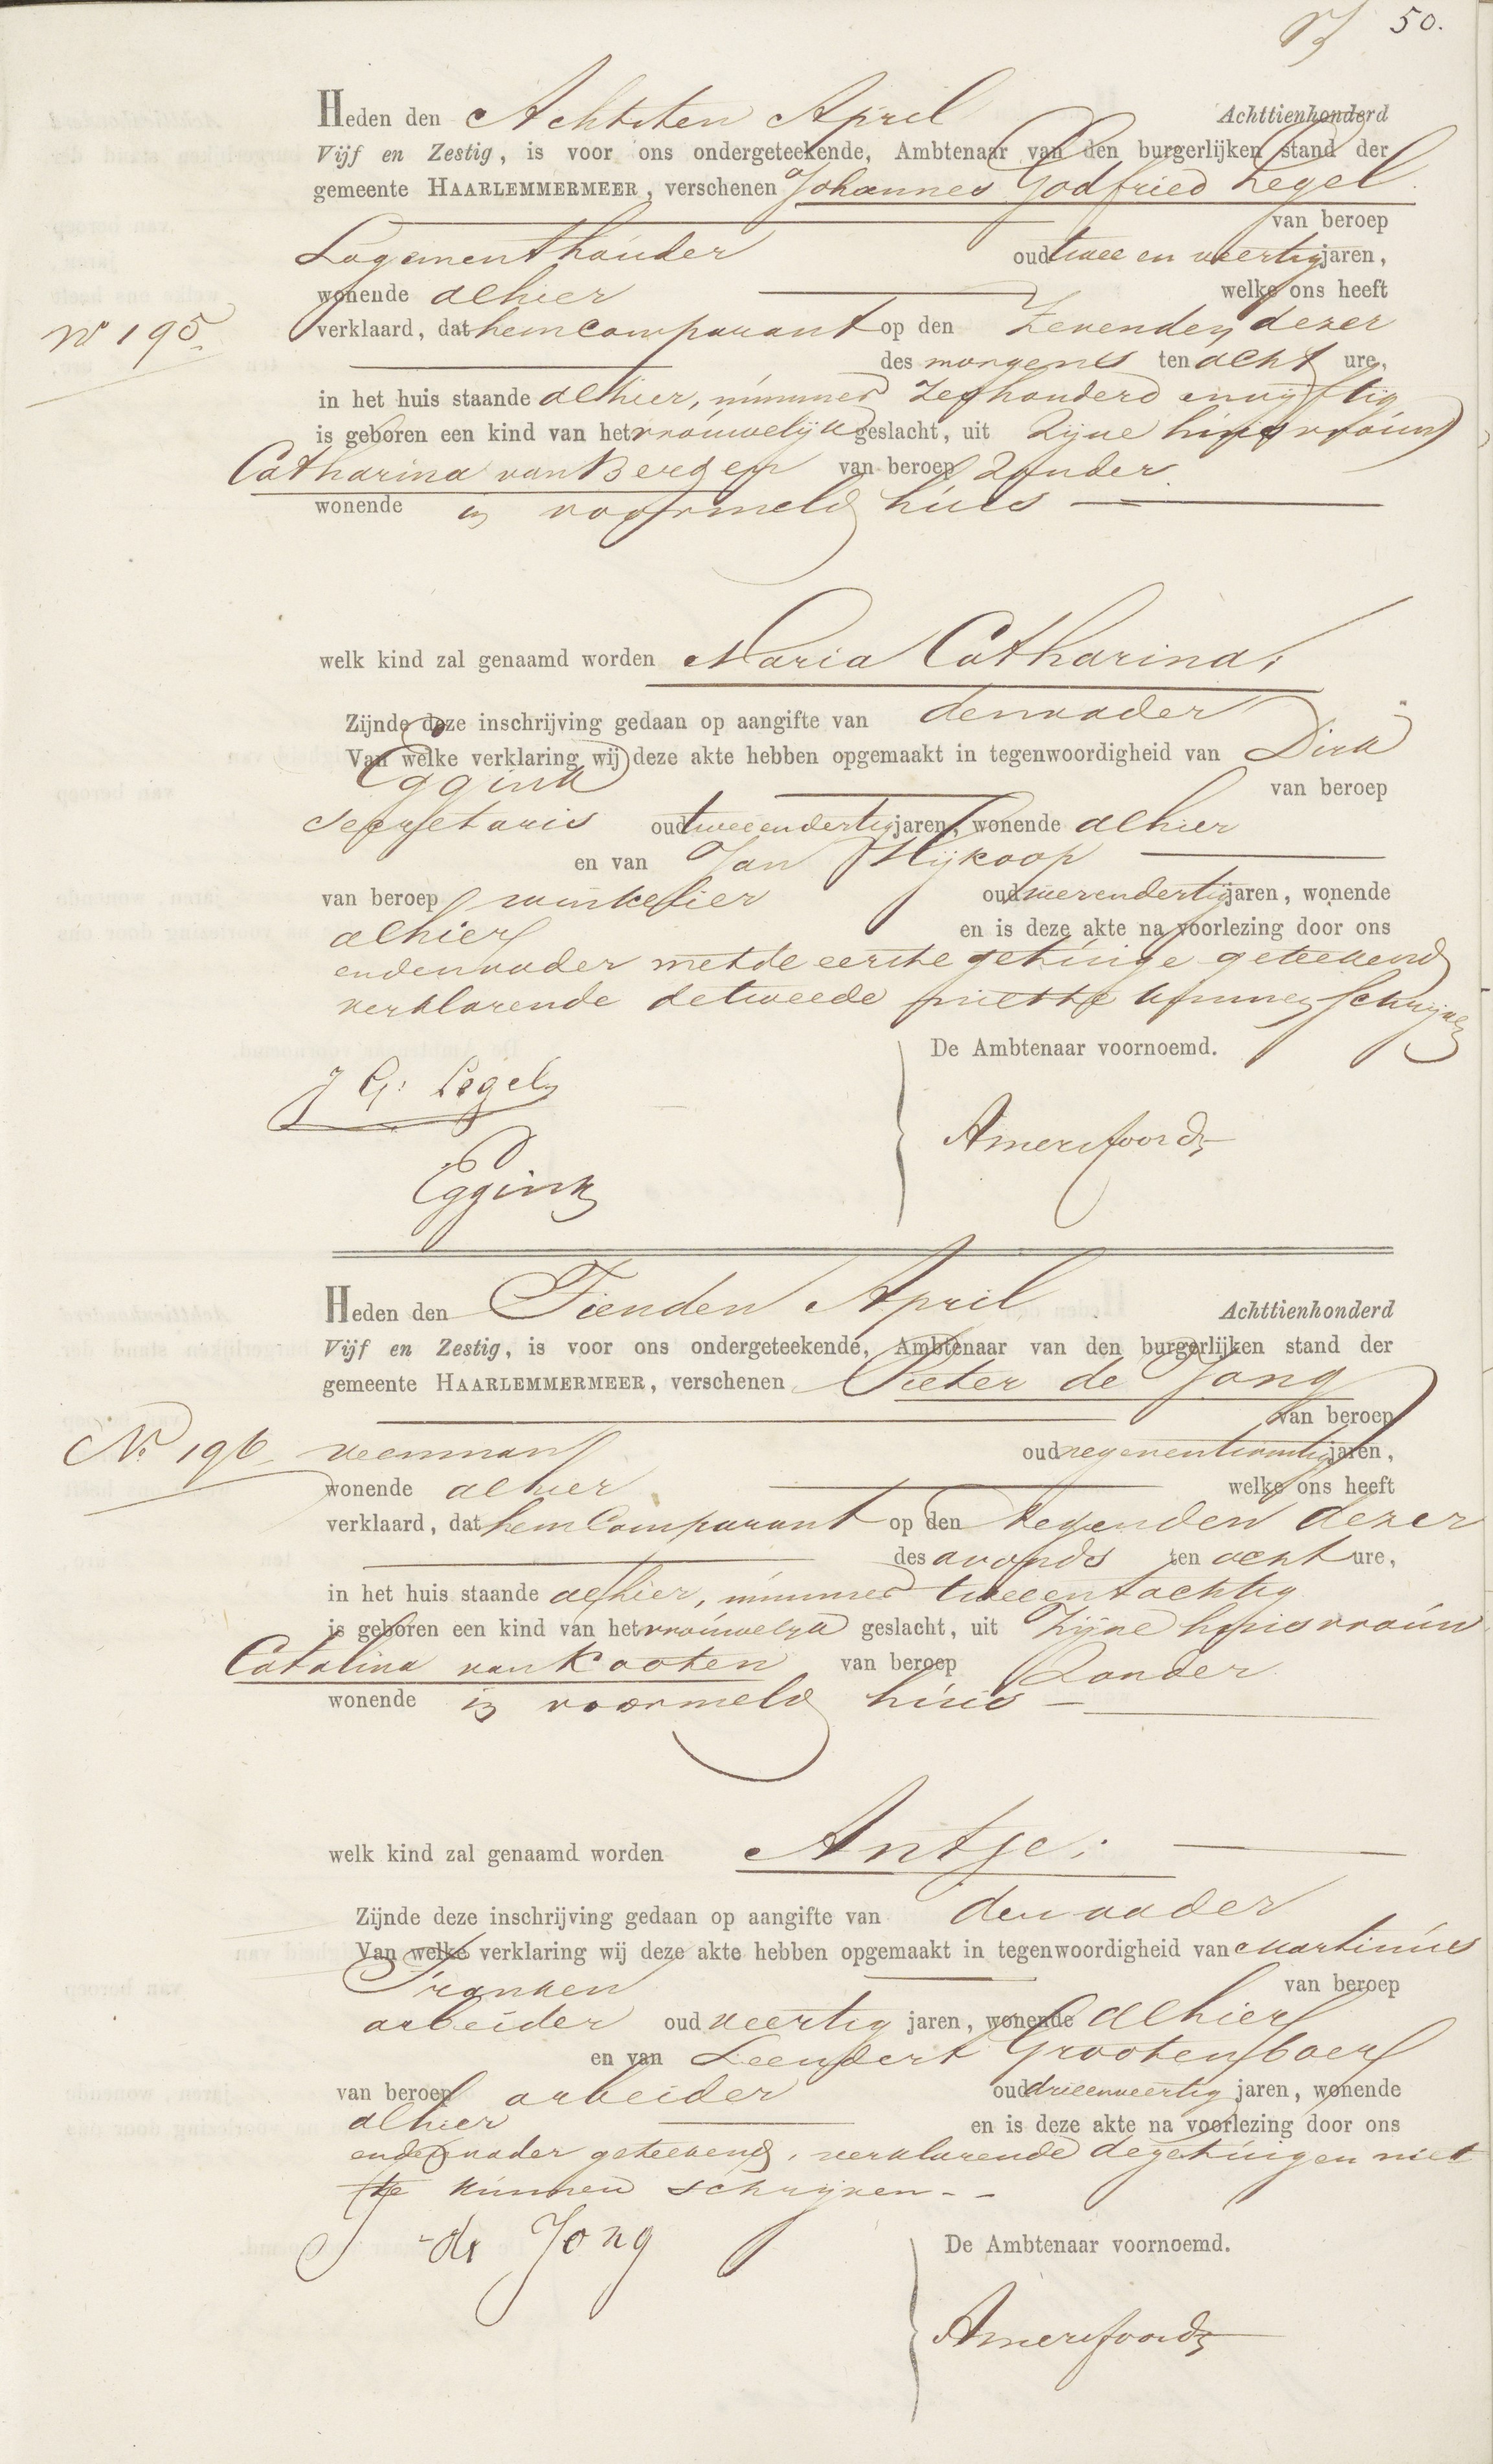 50.
Heden den Achtsten April Achttienhonderd
Vijf en Zestig, is voor ons ondergeteekende, Ambtenaar van den burgerlijken stand der
gemeente HAARLEMMERMEER, verschenen Johannes Godfried Legel
van beroep
Logementhouder oud twee en veertig jaren,
wonende alhier welke ons heeft
No 195. verklaard, dat hem Comparant op den Zevenden dezer
des morgens ten acht ure,
in het huis staande alhier, nummer Zeshonderd envijftig
is geboren een kind van het vrouwelijk geslacht, uit Zijne huisvrouw
Catharina van Bergen van beroep Zonder
wonende in voormeld huis
welk kind zal genaamd worden Maria Catharina,
Zijnde deze inschrijving gedaan op aangifte van den vader
Van welke verklaring wij deze akte hebben opgemaakt in tegenwoordigheid van Dirk
Eggink van beroep
secretaris oud tweeendertig jaren, wonende alhier
en van Jan Slijkoop
van beroep winkelier oud vierendertig jaren, wonende
alhier en is deze akte na voorlezing door ons
en den vader met de eerste getuige geteekend
verklarende de tweede niet te kunnen schrijven
De Ambtenaar voornoemd.
J G: Legel
Amersfoordt
Eggink
Heden den Tienden April Achttienhonderd
Vijf en Zestig, is voor ons ondergeteekende, Ambtenaar van den burgerlijken stand der
gemeente HAARLEMMERMEER, verschenen Pieter de Jong
van beroep
No 196 veenman oud negenentwintig jaren,
wonende alhier welke ons heeft
verklaard, dat hem Comparant op den negenden dezer
des avonds ten acht ure,
in het huis staande alhier, nummer tweeentachtig
is geboren een kind van het vrouwelijk geslacht, uit Zijne huisvrouw
Catalina van Kooten van beroep Zonder
wonende in voormeld huis
welk kind zal genaamd worden Antje;
Zijnde deze inschrijving gedaan op aangifte van den vader
Van welke verklaring wij deze akte hebben opgemaakt in tegenwoordigheid van Martinus
Franken van beroep
arbeider oud veertig jaren, wonende alhier
en van Leendert Grootenboer
van beroep arbeider oud drieenveertig jaren, wonende
alhier en is deze akte na voorlezing door ons
en den vader geteekend, verklarende de getuigen niet
te kunnen schrijven - -
P de Jong
De Ambtenaar voornoemd.
Amersfoordt